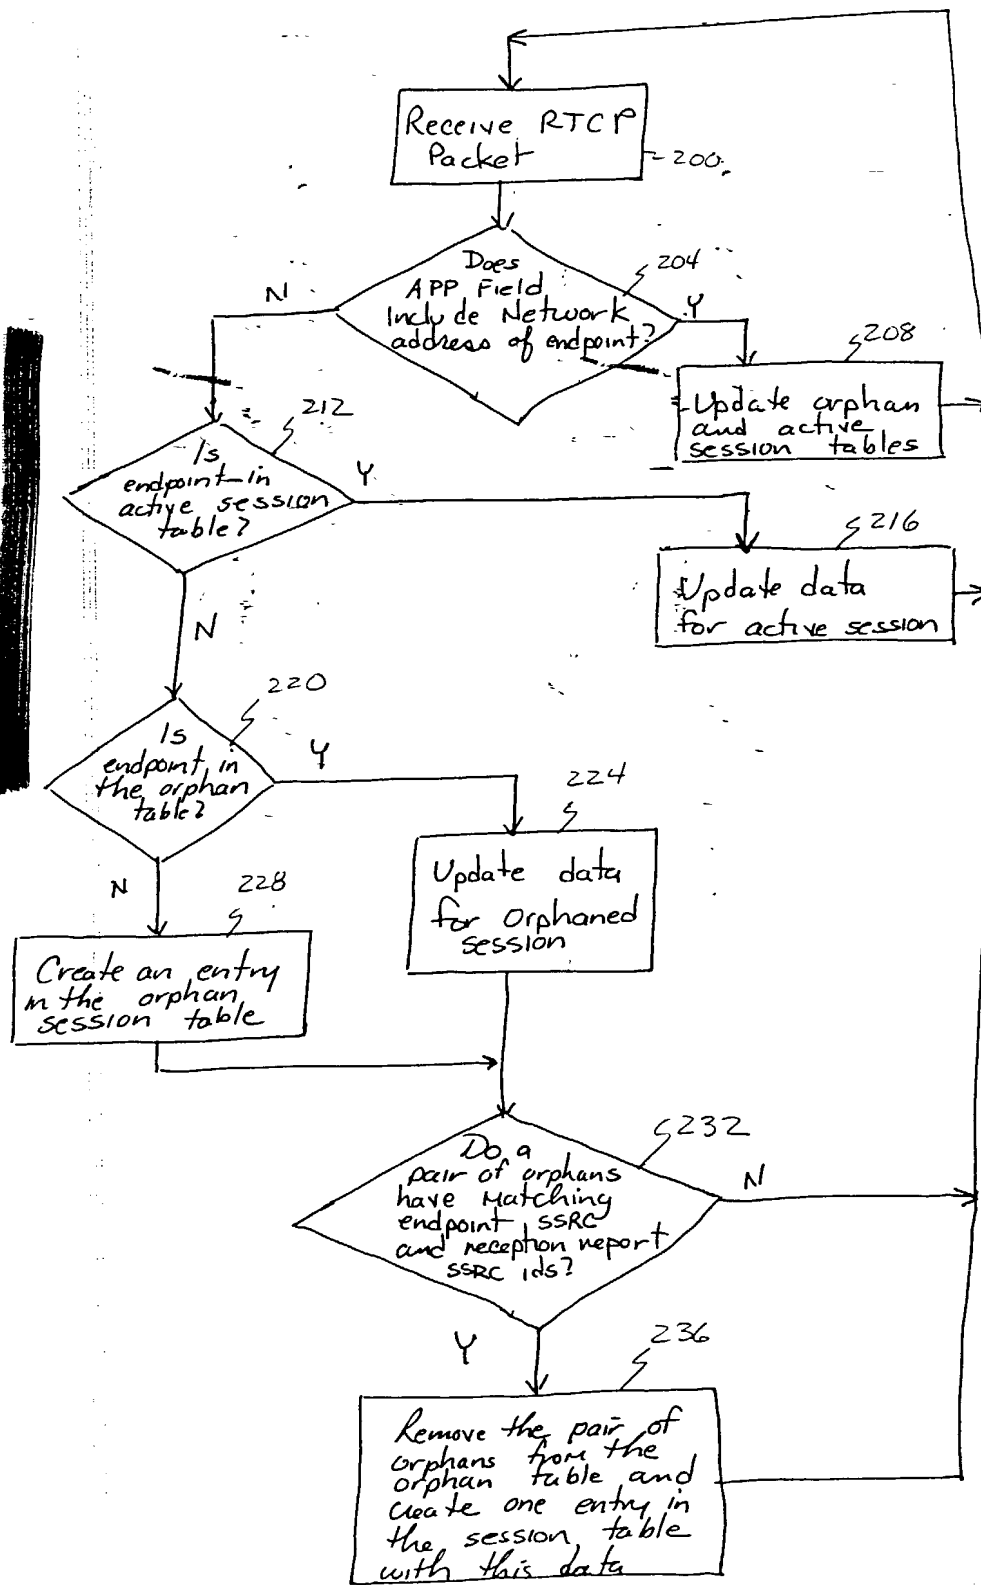 Receive RTCP
Packet
200
Does
APP Field
Include Network
address of endpoint?
204
N
Y
208
Update orphan
and active
session tables
212
Is
endpoint in
active session
table?
Y
216
Update data
for active session
N
220
Is
endpoint in
the orphan
table?
Y
224
Update data
for Orphaned
session
N
228
Create an entry
in the orphan
session table
232
Do a
pair of orphans
have Matching
endpoint SSRC
and reception report
SSRC ids?
N
Y
236
Remove the pair of
orphans from the
orphan table and
create one entry in
the session table
with this data